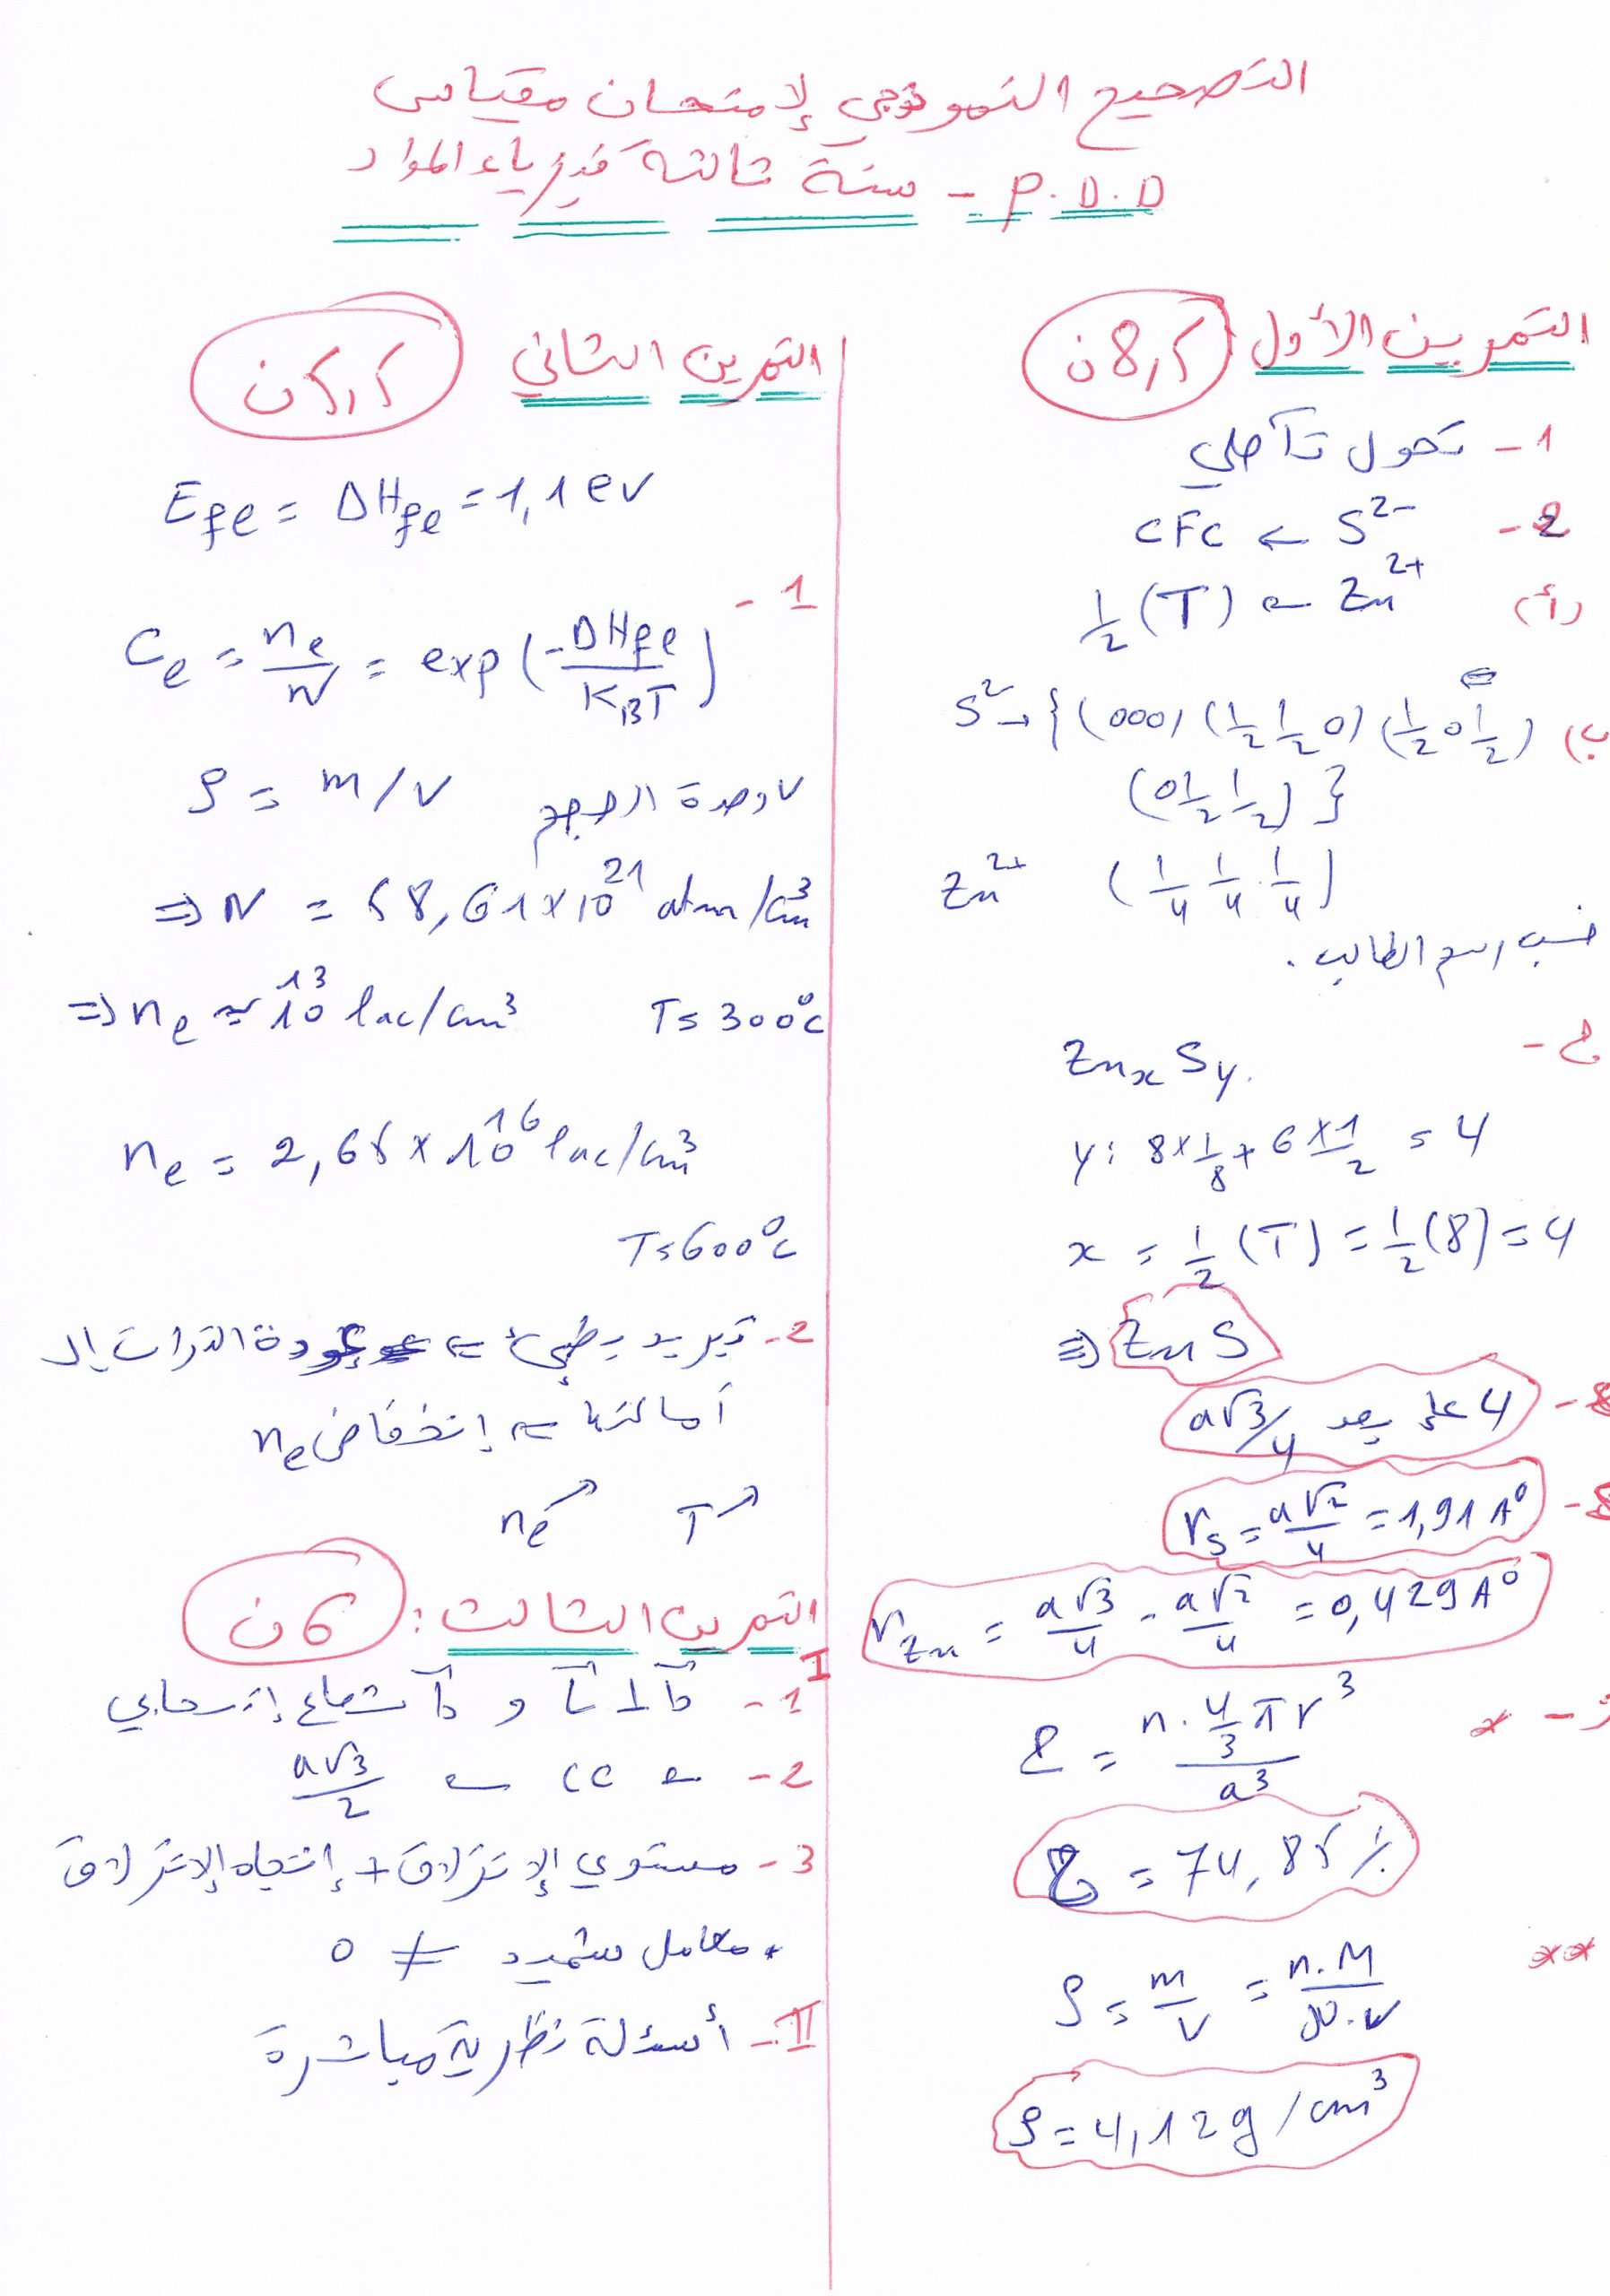 التصحيح النموذجي لإمتحان مقياس
P.D.D - سنة ثالثة فيزياء المواد
التمرين الأول 8,5ن
1- تحول تآصلي
2- S²⁻ ← CFC
(أ) Zn²⁺ ← ½(T)
(ب) S²⁻ → {(000) (½ ½ 0) (½ 0 ½)
(0 ½ ½)}
Zn²⁺ (¼ ¼ ¼)
حسب رسم الطالب.
ج- ZnₓSy.
y: 8×1/8 + 6×1/2 = 4
x = ½(T) = ½(8) = 4
⇒ ZnS
4 على بعد a√3/4
r_S = a√2/4 = 1,91 A°
r_Zn = a√3/4 - a√2/4 = 0,429 A°
* = n.4/3 π r³ / a³
= 74,85 %
** ρ = m/V = n.M/N.V
ρ = 4,12 g/cm³
التمرين الثاني 5,5ن
E_fe = ΔH_fe = 1,1 eV
1- C_e = n_e/N = exp(-ΔH_fe/K_BT)
ρ = m/V V وحدة الحجم
⇒ N = 58,61×10²¹ atm/cm³
⇒ n_e ≈ 10¹³ lac/cm³ T = 300°C
n_e = 2,65×10¹⁶ lac/cm³
T = 600°C
2- تبريد بطيئ ⇐ عودة الذرات إلى
أماكنها ⇐ إنخفاض n_e
T↗ n_e↗
التمرين الثالث: 6ن
I
1- شعاع إنسحابي
2- ← CC ← a√3/2
3- مستوي الإنزلاق + إتجاه الإنزلاق
. معامل شميد ≠ 0
II- أسئلة نظرية مباشرة